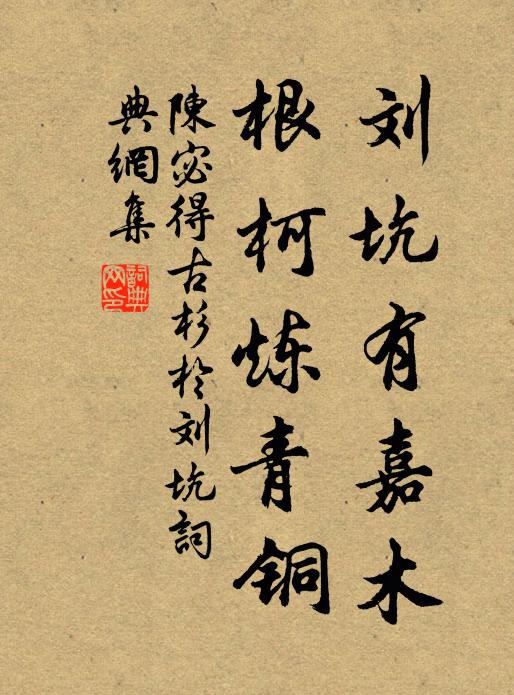 刘坑有嘉木
根柯炼青铜
陳宓得古杉於刘坑詞
典網集
詞典
网印